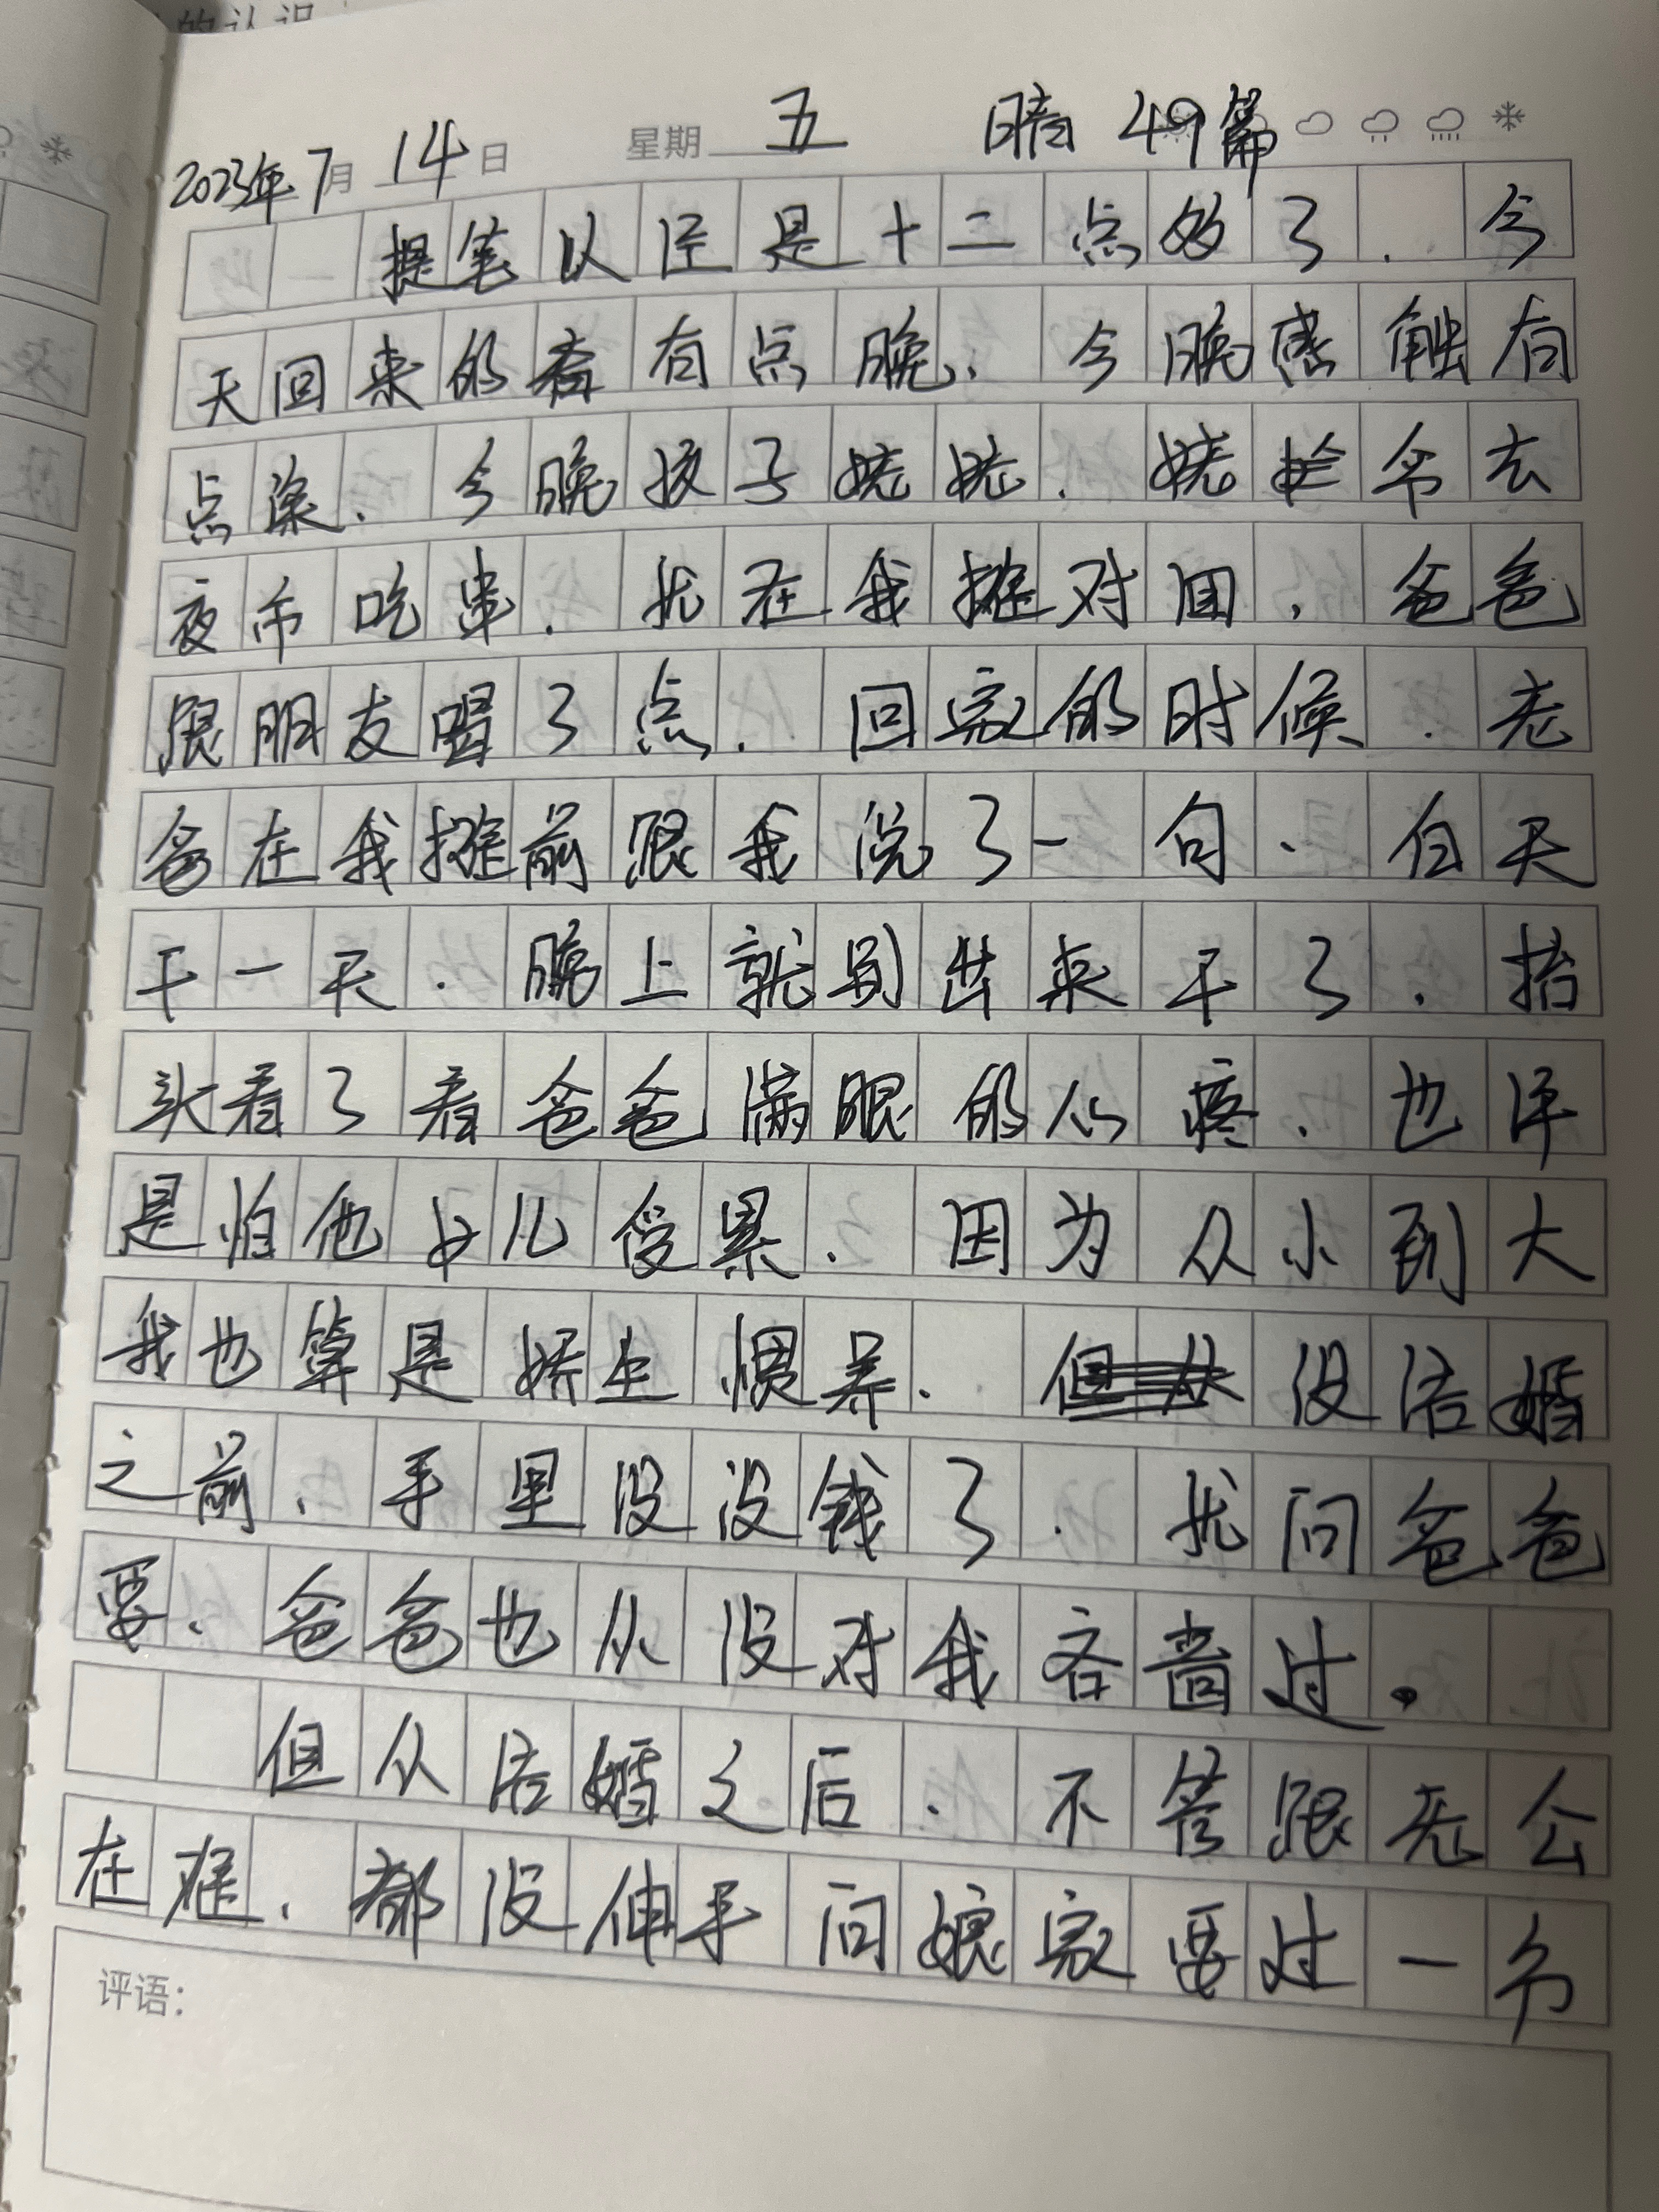 的认识
2023年7月14日 星期五 晴 49篇
提笔以经是十二点多了.今
天回来的着有点晚、今晚感触有
点深、今晚孩子姥姥.姥爷去
夜市吃串.扰在我摊对面,爸爸
跟朋友喝了点.回家的时候.老
爸在我摊前跟我说了一句、白天
干一天.晚上就别出来干了.抬
头看了看爸爸满眼的心疼.也许
是怕他女儿受累.因为从小到大
我也算是娇生惯养.没结婚
之前、手里没没钱了.扰问爸爸
要、爸爸也从没对我吝啬过。
但从结婚之后.不管跟老公
在难、都没伸手问娘家要过一分
评语：